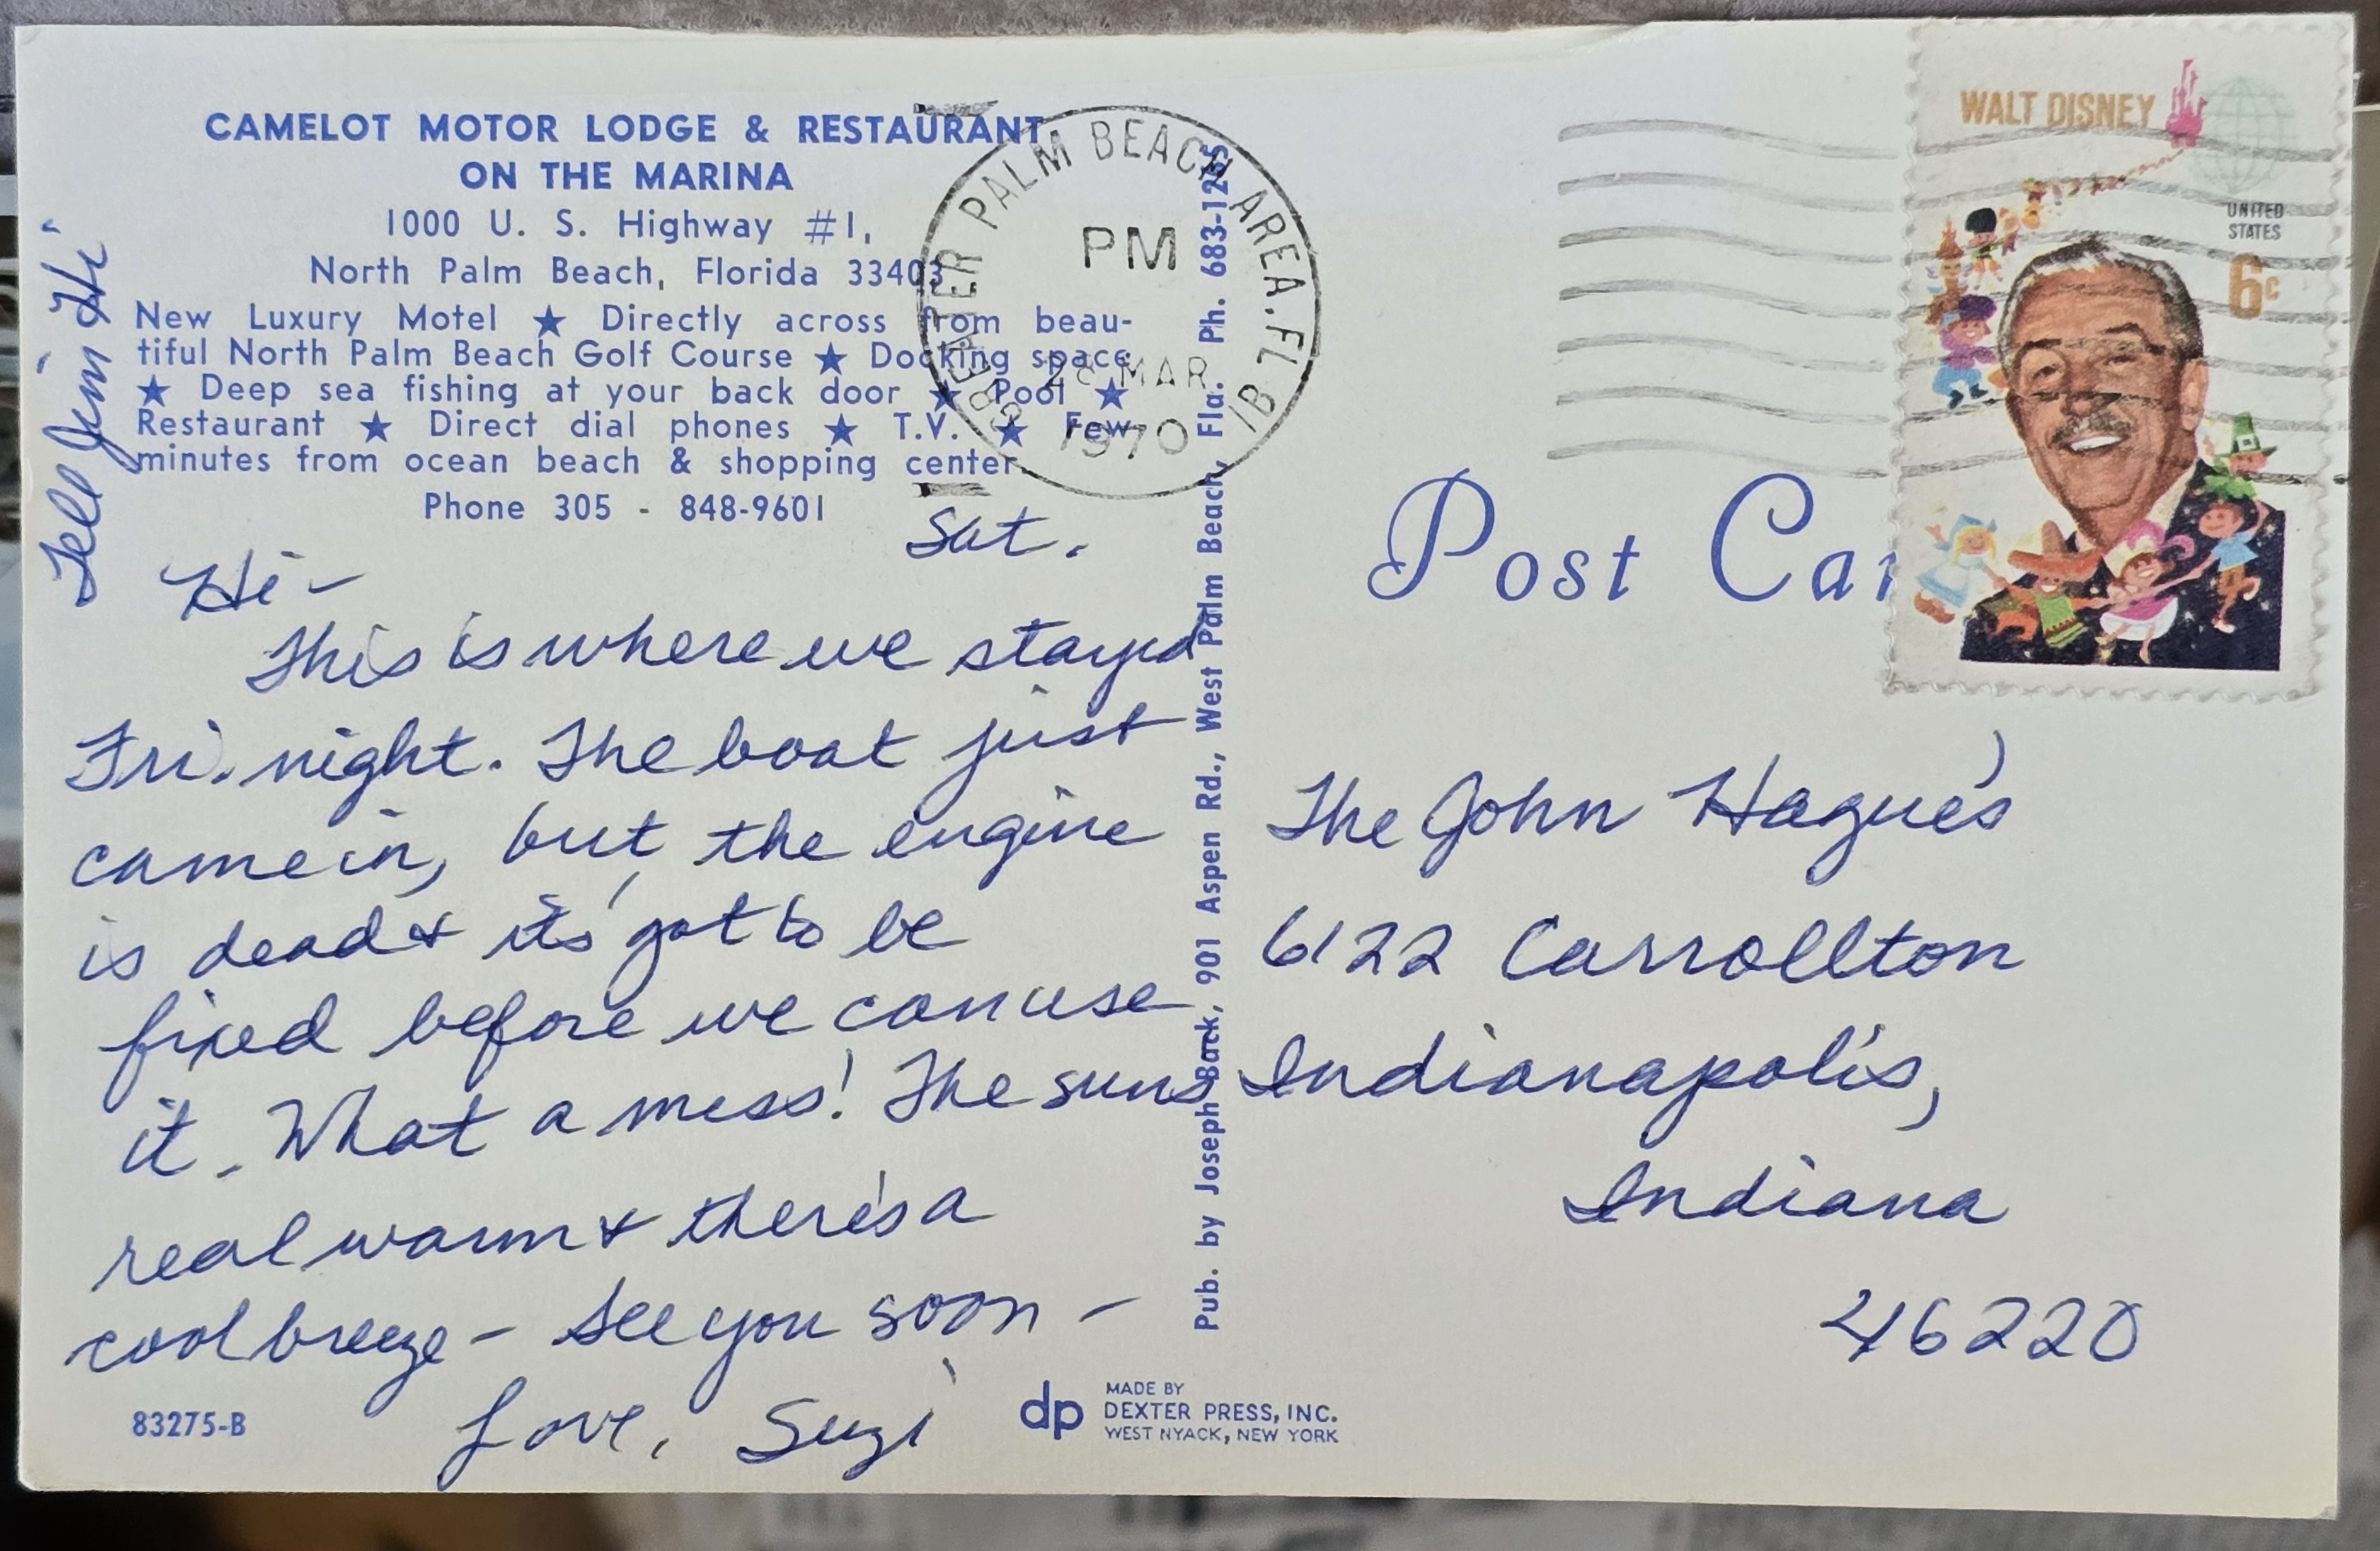 CAMELOT MOTOR LODGE & RESTAURANT
ON THE MARINA
1000 U. S. Highway #1,
North Palm Beach, Florida 33403
New Luxury Motel ★ Directly across from beau-
tiful North Palm Beach Golf Course ★ Docking space
★ Deep sea fishing at your back door ★ Pool ★
Restaurant ★ Direct dial phones ★ T.V. ★ Few
minutes from ocean beach & shopping center
Phone 305 - 848-9601
Tell Jim Hi
Sat.
Hi -
This is where we stayed
Fri. night. The boat just
came in, but, the engine
is dead & it's got to be
fixed before we can use
it. What a mess! The suns
real warm & there's a
cool breeze - See you soon -
Love, Suzi
83275-B
dp
MADE BY
DEXTER PRESS, INC.
WEST NYACK, NEW YORK
Pub. by Joseph Back, 901 Aspen Rd., West Palm Beach, Fla. Ph. 683-1265
GREATER PALM BEACH AREA. FL 1B
PM
28 MAR
1970
WALT DISNEY
UNITED
STATES
6c
Post Car
The John Hague's
6122 Carrollton
Indianapolis,
Indiana
46220